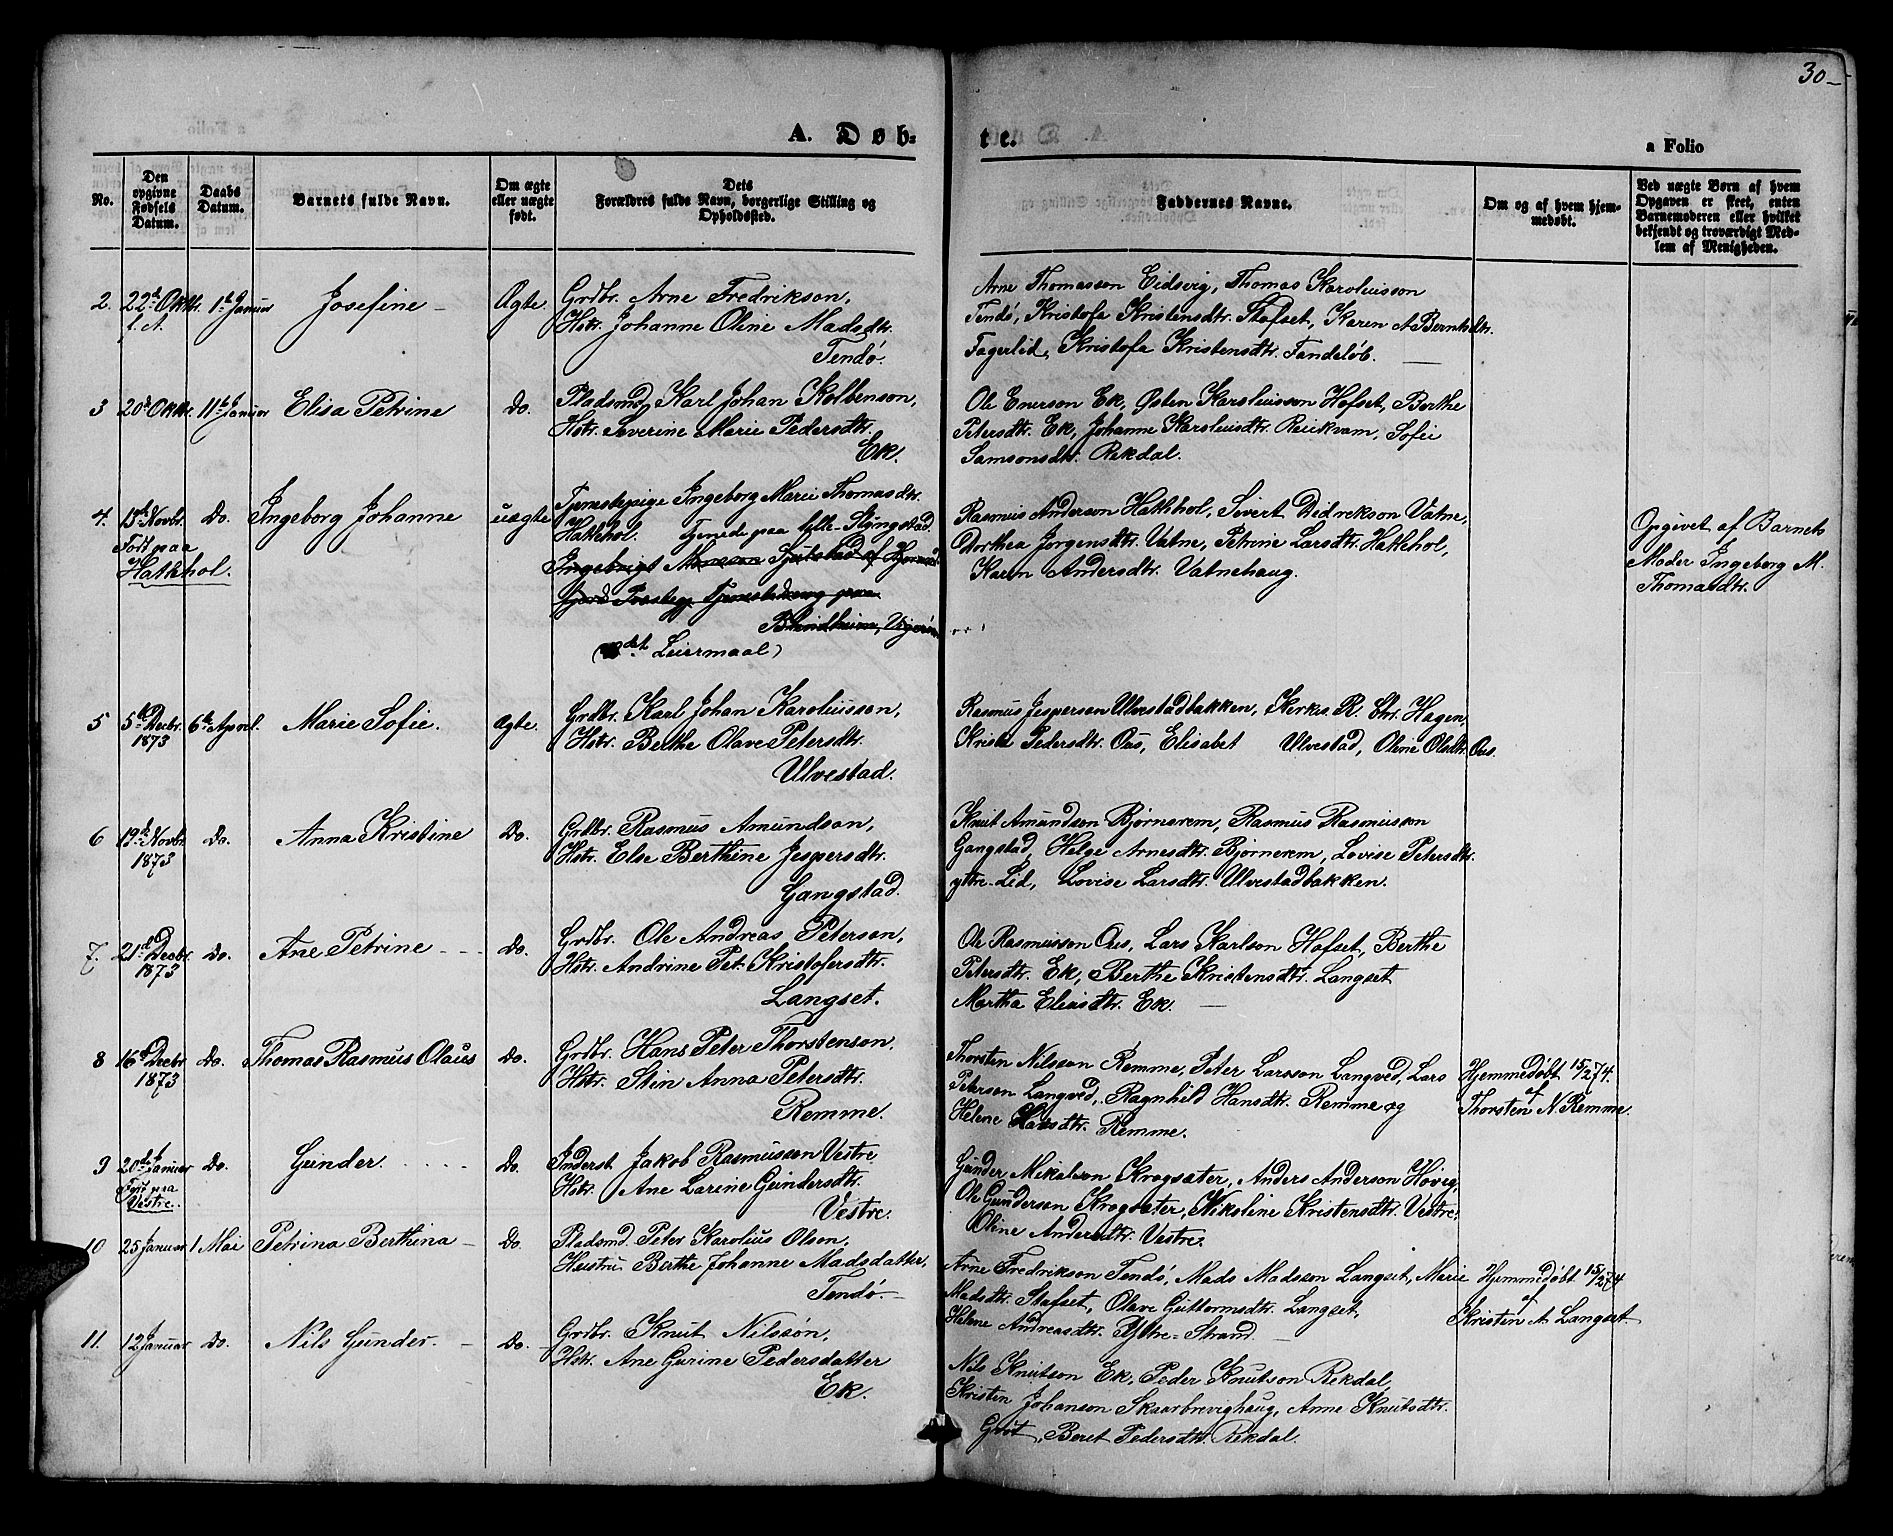 30
A. Døb-
te.
a Folio
No.
Den opgivne Fødsels Datum.
Daabs Datum.
Barnets fulde Navn.
Om ægte eller uægte født.
Dets Forældres fulde Navn, borgerlige Stilling og Opholdssted.
Faddernes Navne.
Om og af hvem hjemmedøbt.
Ved uægte Børn af hvem Opgaven er skeet, enten Barnemoderen eller hvilket bekjendt og troværdigt Medlem af Menigheden.
2. 22d Oktr. 1ste Januar Josefine Ægte. Grdbr. Arne Fredrikson,
f. A.
Hstr. Johanne Oline Madsdtr.
Tendö.
Arne Thomassen Eidsvig, Thomas Karoliusson
Tendö, Kristofa Kristensdtr. Stafset, Karen A Berntsdtr.
Fagerlid, Kristofa Kristensdtr. Tandelöb.
3 20d Oktr. 11te Januar Elisa Petrine Do. Pladsmd Karl Johan Kolbenson,
Hstr. Severine Marie Pedersdtr.
Ek.
Ole Enerson Ek, Östen Karoliusson Hofset, Berthe
Petersdtr. Ek, Johanne Karoliusdtr. Reikvam, Sofie
Samsonsdtr. Rekdal.
4. 15de Novbr. Do. Ingeborg Johanne uægte Tjenestepige Ingeborg Marie Thomasdtr.
Født paa
Hatlehol.
Hatlehol. Tjenede paa lille-Stÿngstad.
Ingebrigt Monsson Sjutstad af
Tjenestedreng paa
Blindheim, Vigeröen
(det Leiermaal)
Rasmus Anderson Hatlehol, Sivert Didrekson Vatne,
Dorthea Jorgensdtr. Vatne, Petrine Larsdtr. Hatlehol,
Karen Andersdtr. Vatnehaug.
Opgivet af Barnets
Moder Ingeborg M.
Thomasdtr.
5 5te Decbr. 6te April. Marie Sofie. Ægte. Grdbr. Karl Johan Karoliusson,
1873
Hstr. Berthe Olave Petersdtr.
Ulvestad.
Rasmus Jesperson Ulvestadbakken, Kirks. R. Chr. Hagen,
Kristi Pedersdtr. Aas, Elisabet Ulvestad, Oline Olsdtr. Aas.
6 19de Novbr. Do. Anna Kristine Do. Grdbr. Rasmus Amundson,
1873
Hstr. Else Berthine Jespersdtr.
Gangstad.
Knut Amundson Bjørnerem, Rasmus Rasmusson
Gangstad, Helge Arnesdtr. Bjørnerem, Lovise Petersdtr.
ytre-Lid, Lovise Larsdtr. Ulvestadbakken.
7. 21d Decbr. Do. Ane Petrine Do. Grdbr. Ole Andreas Peterson,
1873
Hstr. Andrine Pet. Kristofersdtr.
Langset.
Ole Rasmusson Aas, Lars Karlson Hofset, Berthe
Petersdtr. Ek, Berthe Kristensdtr. Langset
Martha Eliasdtr. Ek.
8 16d Decbr. Do. Thomas Rasmus Olaus Do. Grdbr. Hans Peter Thorstenson,
1873
Hstr. Stin Anna Petersdtr.
Remme.
Thorsten Nilsson Remme, Peter Larsson Langved, Lars
Peterson Langved, Ragnhild Hansdtr. Remme og
Helene Hansdtr. Remme.
Hjemmedöbt 15/2 74.
af
Thorsten N. Remme.
9 20de Januar Do. Gunder. Do. Inderst Jakob Rasmusson Vestre
Født paa
Vestre.
Hstr. Ane Larine Gundersdtr.
Vestre.
Gunder Mikalson Krogsæter, Anders Anderson Hovig,
Ole Gunderson Krogsæter, Nikoline Kristensdtr. Vestre,
Oline Andersdtr. Vestre.
10 25 Januar 1 Mai Petrina Berthina Do. Pladsmd. Peter Karolius Olson,
Hustru Berthe Johanne Madsdatter,
Tendö.
Arne Fredrikson Tendö, Mads Madsson Langset, Marie
Madsdtr. Stafset, Olave Guttormsdtr. Langset,
Helene Andreasdtr. Ytre-Strand.
Hjemmedöbt 15/2 74
af
Kristen A. Langset.
11. 12 Januar Do. Nils Gunder. Do. Grdbr. Knut Nilsson,
Hstr. Ane Gurine Pedersdatter
Ek.
Nils Knutson Ek, Peder Knutson Rekdal,
Kristen Johanson Skaarbrevighaug, Anne Knutsdtr.
Gröt, Beret Pedersdtr. Rekdal.